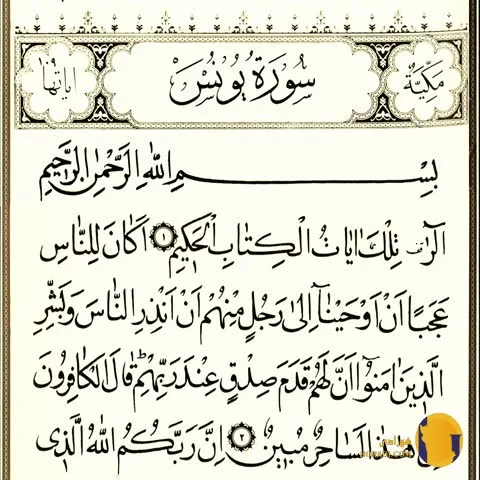 مَكِّيَّةٌ سُورَةُ يُونُسَ اٰيَاتُهَا ١٠٩
بِسْمِ اللّٰهِ الرَّحْمٰنِ الرَّحِيمِ
الٓرٰ تِلْكَ اٰيَاتُ الْكِتَابِ الْحَكِيمِ ١ اَكَانَ لِلنَّاسِ
عَجَبًا اَنْ اَوْحَيْنَٓا اِلٰى رَجُلٍ مِنْهُمْ اَنْ اَنْذِرِ النَّاسَ وَبَشِّرِ
الَّذِينَ اٰمَنُٓوا اَنَّ لَهُمْ قَدَمَ صِدْقٍ عِنْدَ رَبِّهِمْ قَالَ الْكَافِرُونَ
لَسَاحِرٌ مُبِينٌ ٢ اِنَّ رَبَّكُمُ اللّٰهُ الَّذِي